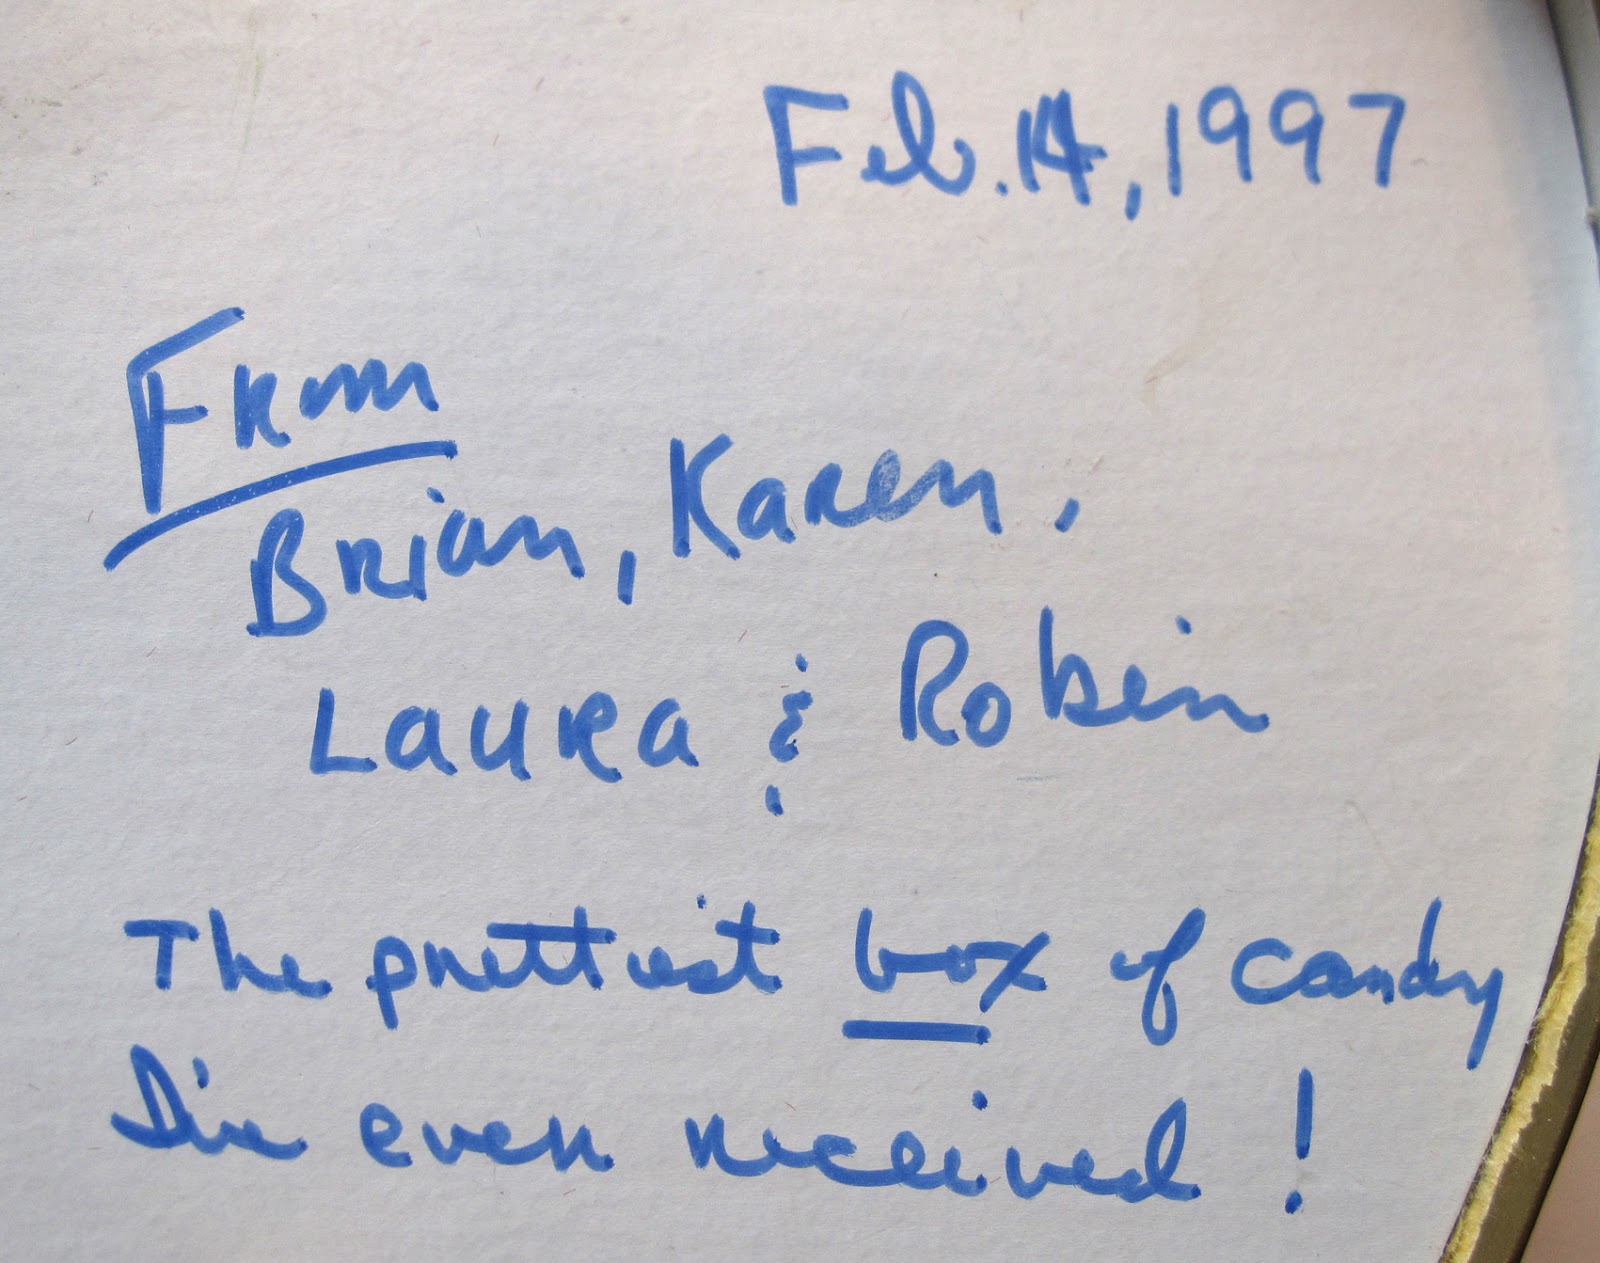 Feb. 14, 1997
From
Brian, Karen,
Laura & Robin
The prettiest box of candy
I've ever received!